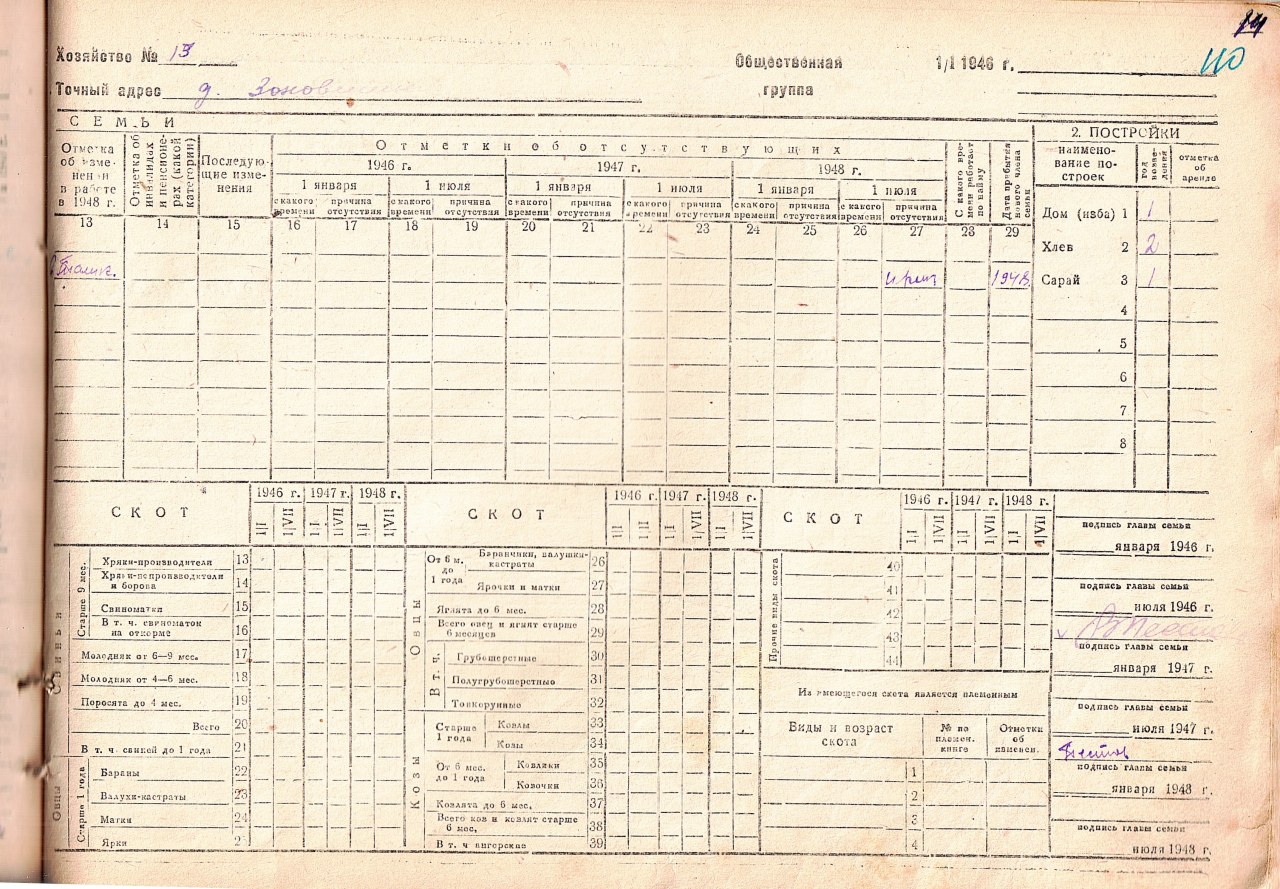 110
Хозяйство № 13
Общественная 1/I 1946 г.
Точный адрес д.
группа
СЕМЬИ
Отметка об измененьи в работе в 1948 г.
Отметка об инвалидах и пенсионерах (какой категории)
Последующие изменения
Отметки об отсутствующих
1946 г. 1947 г. 1948 г.
1 января 1 июля 1 января 1 июля 1 января 1 июля
с какого времени причина отсутствия с какого времени причина отсутствия с какого времени причина отсутствия с какого времени причина отсутствия с какого времени причина отсутствия с какого времени причина отсутствия
С какого времени работает по найму
Дата прибытия нового члена семьи
13 14 15 16 17 18 19 20 21 22 23 24 25 26 27 28 29
1948
2. ПОСТРОЙКИ
наименование построек
год возведения
отметка об аренде
Дом (изба) 1 1
Хлев 2 2
Сарай 3 1
4
5
6
7
8
СКОТ
1946 г. 1947 г. 1948 г.
1/I 1/VII 1/I 1/VII 1/I 1/VII
Свиньи
Старше 9 мес.
Хряки-производители 13
Хряки-непроизводители и борова 14
Свиноматки 15
В т. ч. свиноматок на откорме 16
Молодняк от 6—9 мес. 17
Молодняк от 4—6 мес. 18
Поросята до 4 мес. 19
Всего 20
В т. ч свиней до 1 года 21
Овцы
Старше 1 года
Бараны 22
Валухи-кастраты 23
Матки 24
Ярки 25
СКОТ
1946 г. 1947 г. 1948 г.
1/I 1/II 1/I 1/VII 1/I 1/VII
Овцы
От 6 м. до 1 года
Баранчики, валушки-кастраты 26
Ярочки и матки 27
Ягнята до 6 мес. 28
Всего овец и ягнят старше 6 месяцев 29
В т. ч.
Грубошерстные 30
Полугрубошерстные 31
Тонкорунные 32
Козы
Старше 1 года
Козлы 33
Козы 34
От 6 мес. до 1 года
Козлики 35
Козочки 36
Козлята до 6 мес. 37
Всего коз и козлят старше 6 мес. 38
В т. ч ангорские 39
СКОТ
1946 г. 1947 г. 1948 г.
1/I 1/VII 1/I 1/VII 1/I 1/VII
Прочие виды скота
40
41
42
43
44
Из имеющегося скота является племенным
Виды и возраст скота
№ по племен. книге
Отметки об изменен.
1
2
3
4
подпись главы семьи
января 1946 г.
подпись главы семьи
июля 1946 г.
подпись главы семьи
января 1947 г.
подпись главы семьи
июля 1947 г.
подпись главы семьи
января 1948 г.
подпись главы семьи
июля 1948 г.